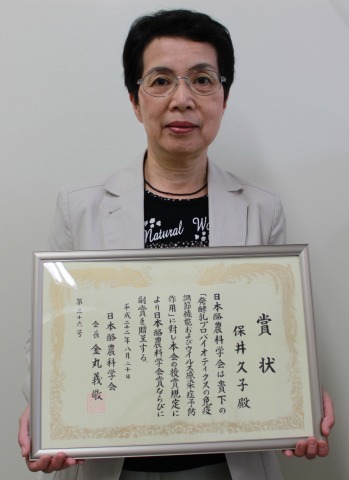 賞状
保井久子殿
日本酪農科学会は貴下の
「発酵乳プロバイオティクスの免疫
調節機能およびウイルス感染症予防
作用」に対し本会の授賞規定に
より日本酪農科学会賞ならびに
副賞を贈呈する。
平成二十二年八月二十日
日本酪農科学会
会長 金丸義敬
第三十六号
Natural Wo